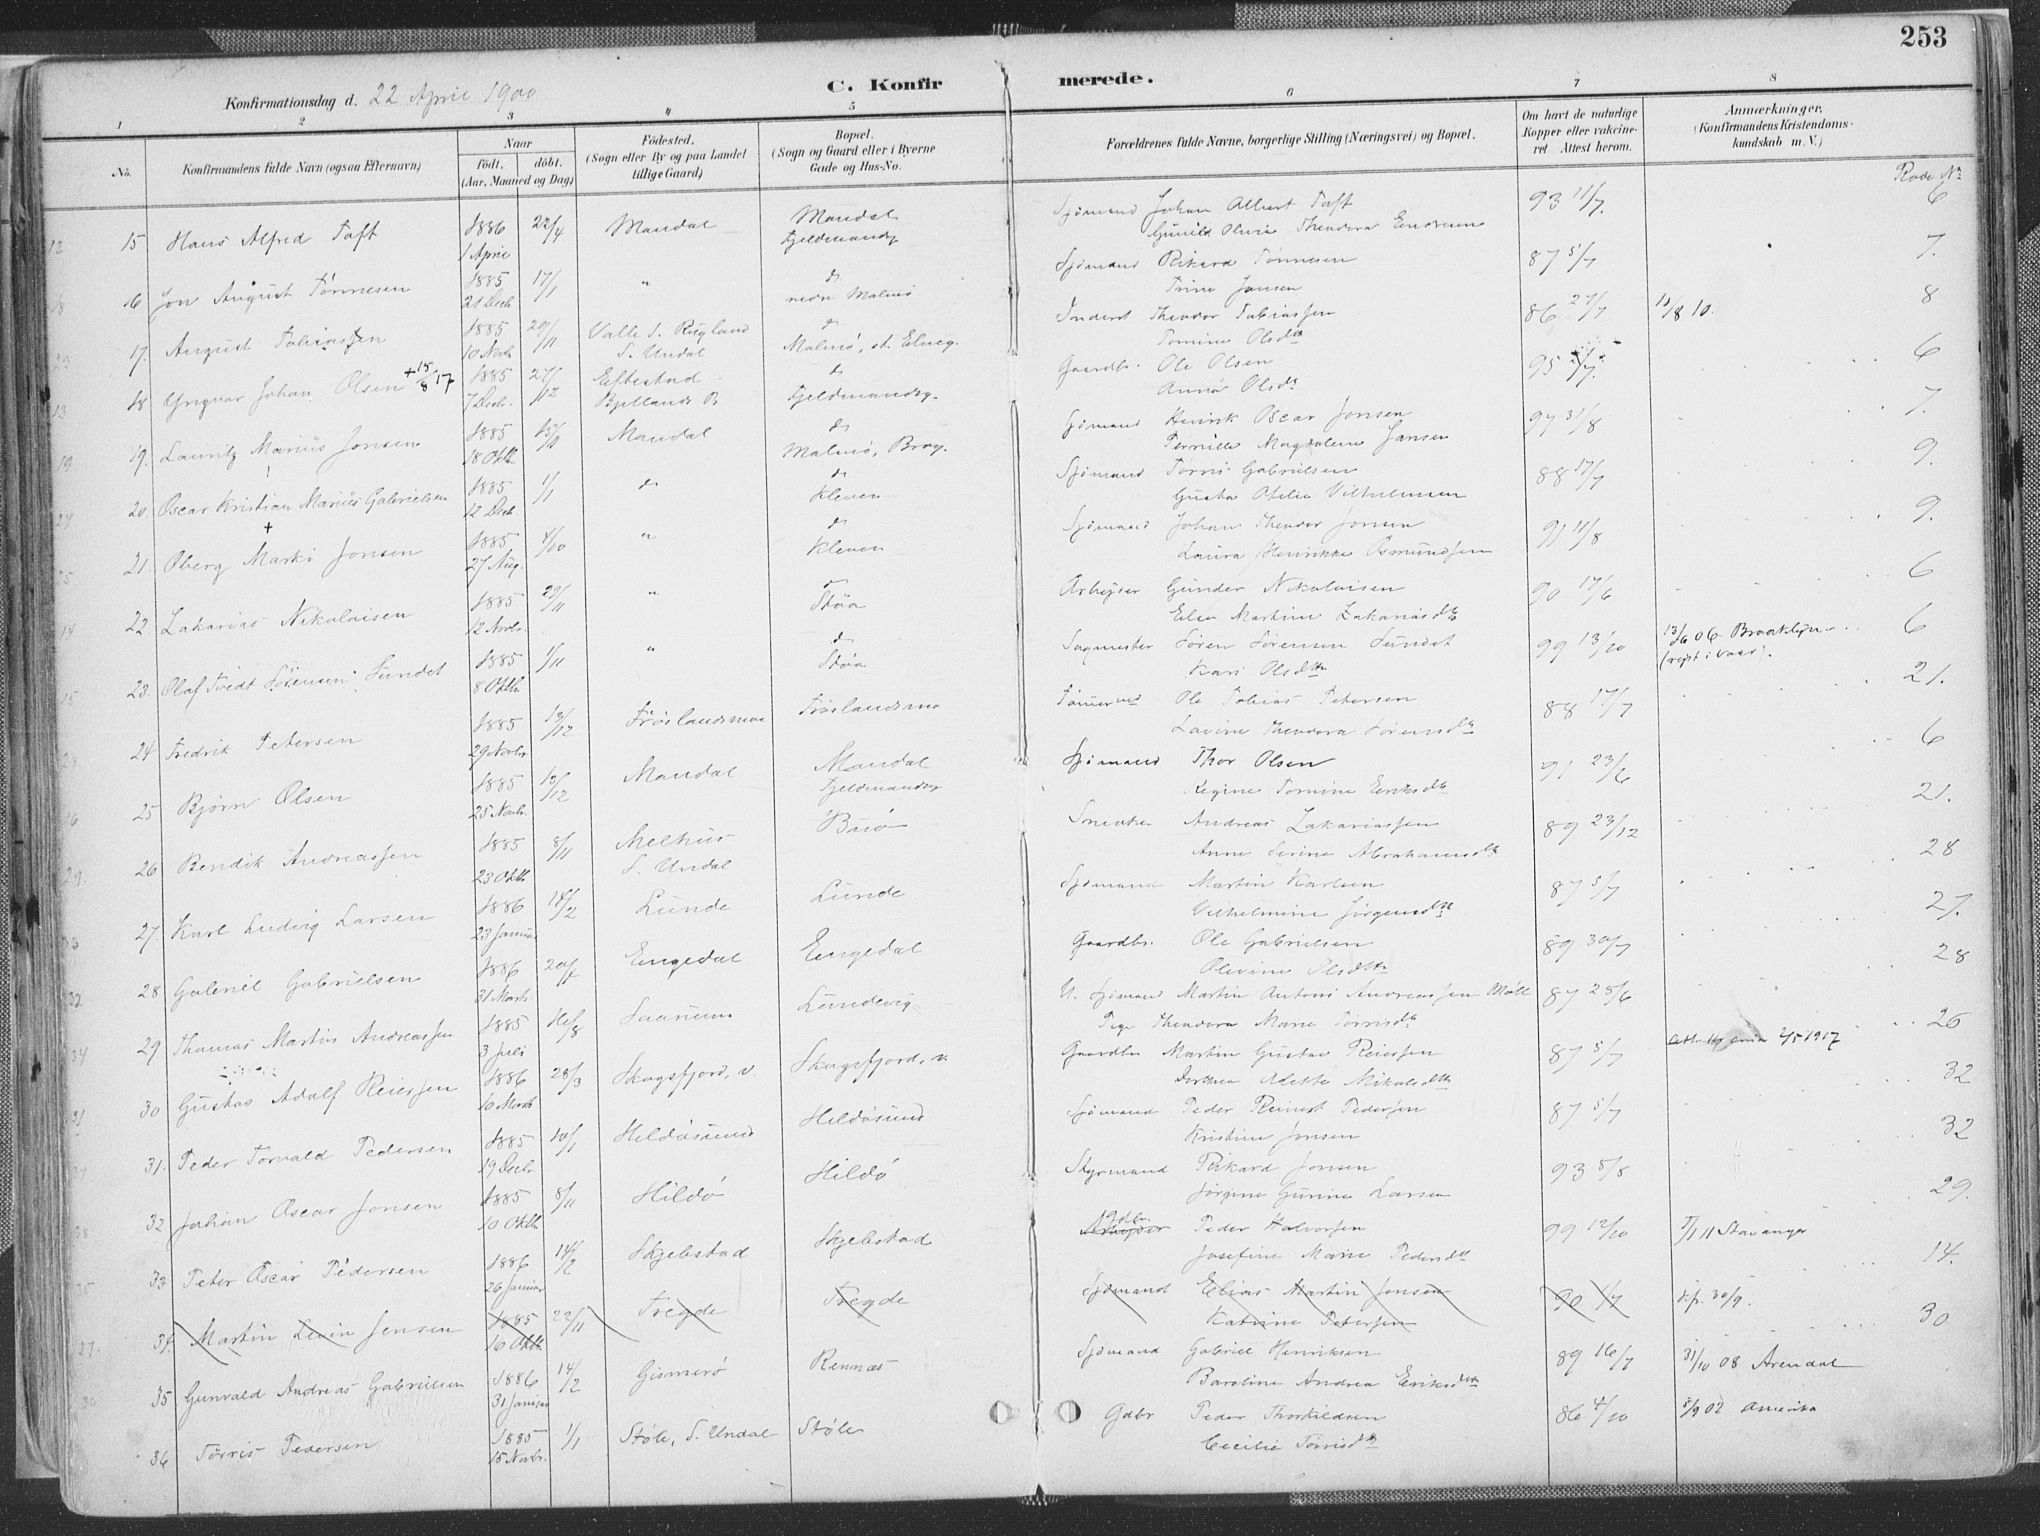 253
Konfirmationsdag d. 22 April 1900
C. Konfirmerede.
1 2 3 4 5 6 7 8
No. Konfirmandens fulde Navn (ogsaa Efternavn) Naar født. døbt. (Aar, Maaned og Dag) Fødested. (Sogn eller By og paa Landet tillige Gaard) Bopæl. (Sogn og Gaard eller i Byerne Gade og Hus-No. Forældrenes fulde Navne, borgerlige Stilling (Næringsvei) og Bopæl. Om havt de naturlige Kopper eller vakcineret. Attest herom. Anmærkninger. (Konfirmandens Kristendomskundskab m. V.)
Rode No
15 Hans Alfred Taft 1886 1 April 22/4 Mandal Mandal Fjeldmandsg. Sjømand Johan Albert Taft 93 11/7 6
Gunild Olivia Theodora
16 Jon August Tönnesen 1885 21 Decb. 17/1 " do nedre Malmö Sjømand Rikard Tönnesen 87 5/7 7.
Trine Jonsen
17. August Tobiassen 1885 10 Novb. 29/11 Valle S. Rugland S. Undal do Malmö, st. Elveg. Inderst Theodor Tobiassen 86 27/7 8
Tomine Olsdtr
18 Yngvar Johan Olsen + 15/8 17 1885 7 Decb. 27/12 Eftestad Bjellands P. do Fjeldmandsg. Gaardbr. Ole Olsen 95 6
Anna Olsdr
19. Lauritz Marius Jonsen 1885 18 Oktb. Mandal do Malmö, Brog. Sjømand Henrik Oscar Jonsen 97 31/8 7.
Pernille Magdalene Jansen
20. Oscar Kristian Marius Gabrielsen 1885 12 Decb. 1/1 do do Kleven Sjømand Tørris Gabrielsen 88 17/7 9.
Gusta Otilie Vilhelmsen
21. Oberg Marki Jonsen + 1885 27 Aug. 4/10 " do Kleven Sjømand Johan Theodor Jonsen 91 11/8 9.
Laura Henrikke Osmundsen
22 Zakarias Nikolaisen 1885 12 Novb. 29/11 " do Støa Arbeider Gunder Nikolaisen 90 17/6 6
Elen Martine Zakariasdtr
23. Olaf Tvedt Sørensen Sundet 1885 8 Oktb. 1/11 " do Støa Sagmester Søren Sørensen Sundet 99 13/10 13/6 06 Brooklyn 6
Kari Olsdtr
24 Fredrik Petersen 1885 29 Novbr 13/12 Frøslandsmoe Frøslandsmo Tømmermd Ole Tobias Petersen 88 17/7 21.
Lavine Theodora Sørensdtr
25 Bjørn Olsen 1885 25 Novbr. 13/12 Mandal Mandal Fjeldmandsg. Sjømand Thor Olsen 91 23/6 6
Regine Tomine Eriksdtr
26 Bendik Andreassen 1885 23 Oktb. 8/11 Melhus S. Undal Buö Snedker Andreas Zakariassen 89 23/12 21.
Anne Serine Abrahamsdtr
27 Karl Ludvig Larsen 1886 23 Januar 14/2 Lunde Lunde Sjømand Martin Karlsen 87 5/7 28
Vilhelmine Jørgensdtr
28 Gabriel Gabrielsen 1886 31 Marts Eengedal Eengedal Gaardbr. Ole Gabrielsen 89 30/7 27.
Olevine Olsdtr
29 Thomas Martin Andreassen 1885 3 Juli 16/8 Saanum Lundevig U. Sjømand Martin Antoni Andreassen 87 28/6 28
Pige Theodora Marie Tørrisdtr
30 Gustav Adolf Reiersen 1886 10 Marts 28/3 Skogsfjord, v. Skogsfjord, v. Gaardbr Martin Gustav Reiersen 87 5/7 2/5 1907 26
Dorthea Aletta Mikalsdtr
31. Peder Torvald Pedersen 1885 19 Decbr. 10/1 Hildösund Hildösund Sjømand Peder Reinert Pedersen 87 5/7 32
Kristine Jonsen
32 Johan Oscar Jonsen 1885 10 Oktb. 8/11 Hildö Hildö Styrmand Rikard Jonsen 93 5/8 32
Jørgine Gurine Larsen
33 Peter Oscar Pedersen 1886 26 Januar 14/2 Skjebstad Skjebstad Arbeider Gdbr. Peder Halvorsen 99 12/10 5/1 11 Stavanger 29.
Josefine Marie Pedersdtr
34. Martin Levin Jensen 1885 16 Oktb. 22/11 Tregde Tregde Sjømand Elias Martin Jensen 90 1/7 14.
Katrine Petersen
35 Gunvald Andreas Gabrielsen 1886 31 Januar 14/2 Gismerö Rennæs Sjømand Gabriel Henriksen 89 16/7 31/10 08 Arendal 30
Baroline Andrea Eriksdtr
36 Tørris Pedersen 1885 15 Novbr. 1/1 Støle, S. Undal Støle Gdbr Peder Thorkildsen 86 4/10 5/9 02 Amerika
Cecilie Tørrisdtr